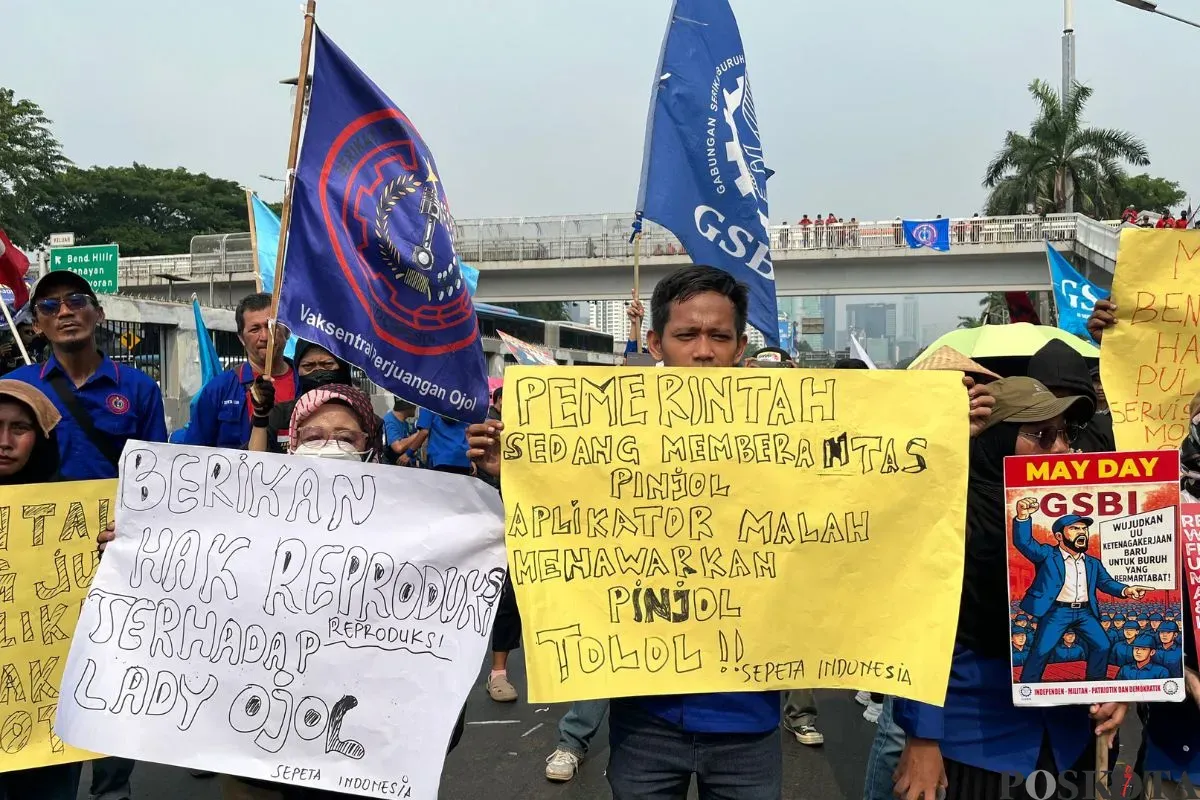 KELUAR
Bend. Hilir
Senayan
Vaksentral Perjuangan Ojol
GABUNGAN SERIKAT BURUH
GSBI
GSBI
BERIKAN
HAK REPRODUKSI
REPRODUKSI
TERHADAP
LADY OJOL
SEPETA INDONESIA
PEMERINTAH
SEDANG MEMBERANTAS
PINJOL
APLIKATOR MALAH
MENAWARKAN
PINJOL
TOLOL !!
SEPETA INDONESIA
MAY DAY
GSBI
WUJUDKAN
UU
KETENAGAKERJAAN
BARU
UNTUK BURUH
YANG
BERMARTABAT!
INDEPENDEN - MILITAN - PATRIOTIK DAN DEMOKRATIK
POSKOTA